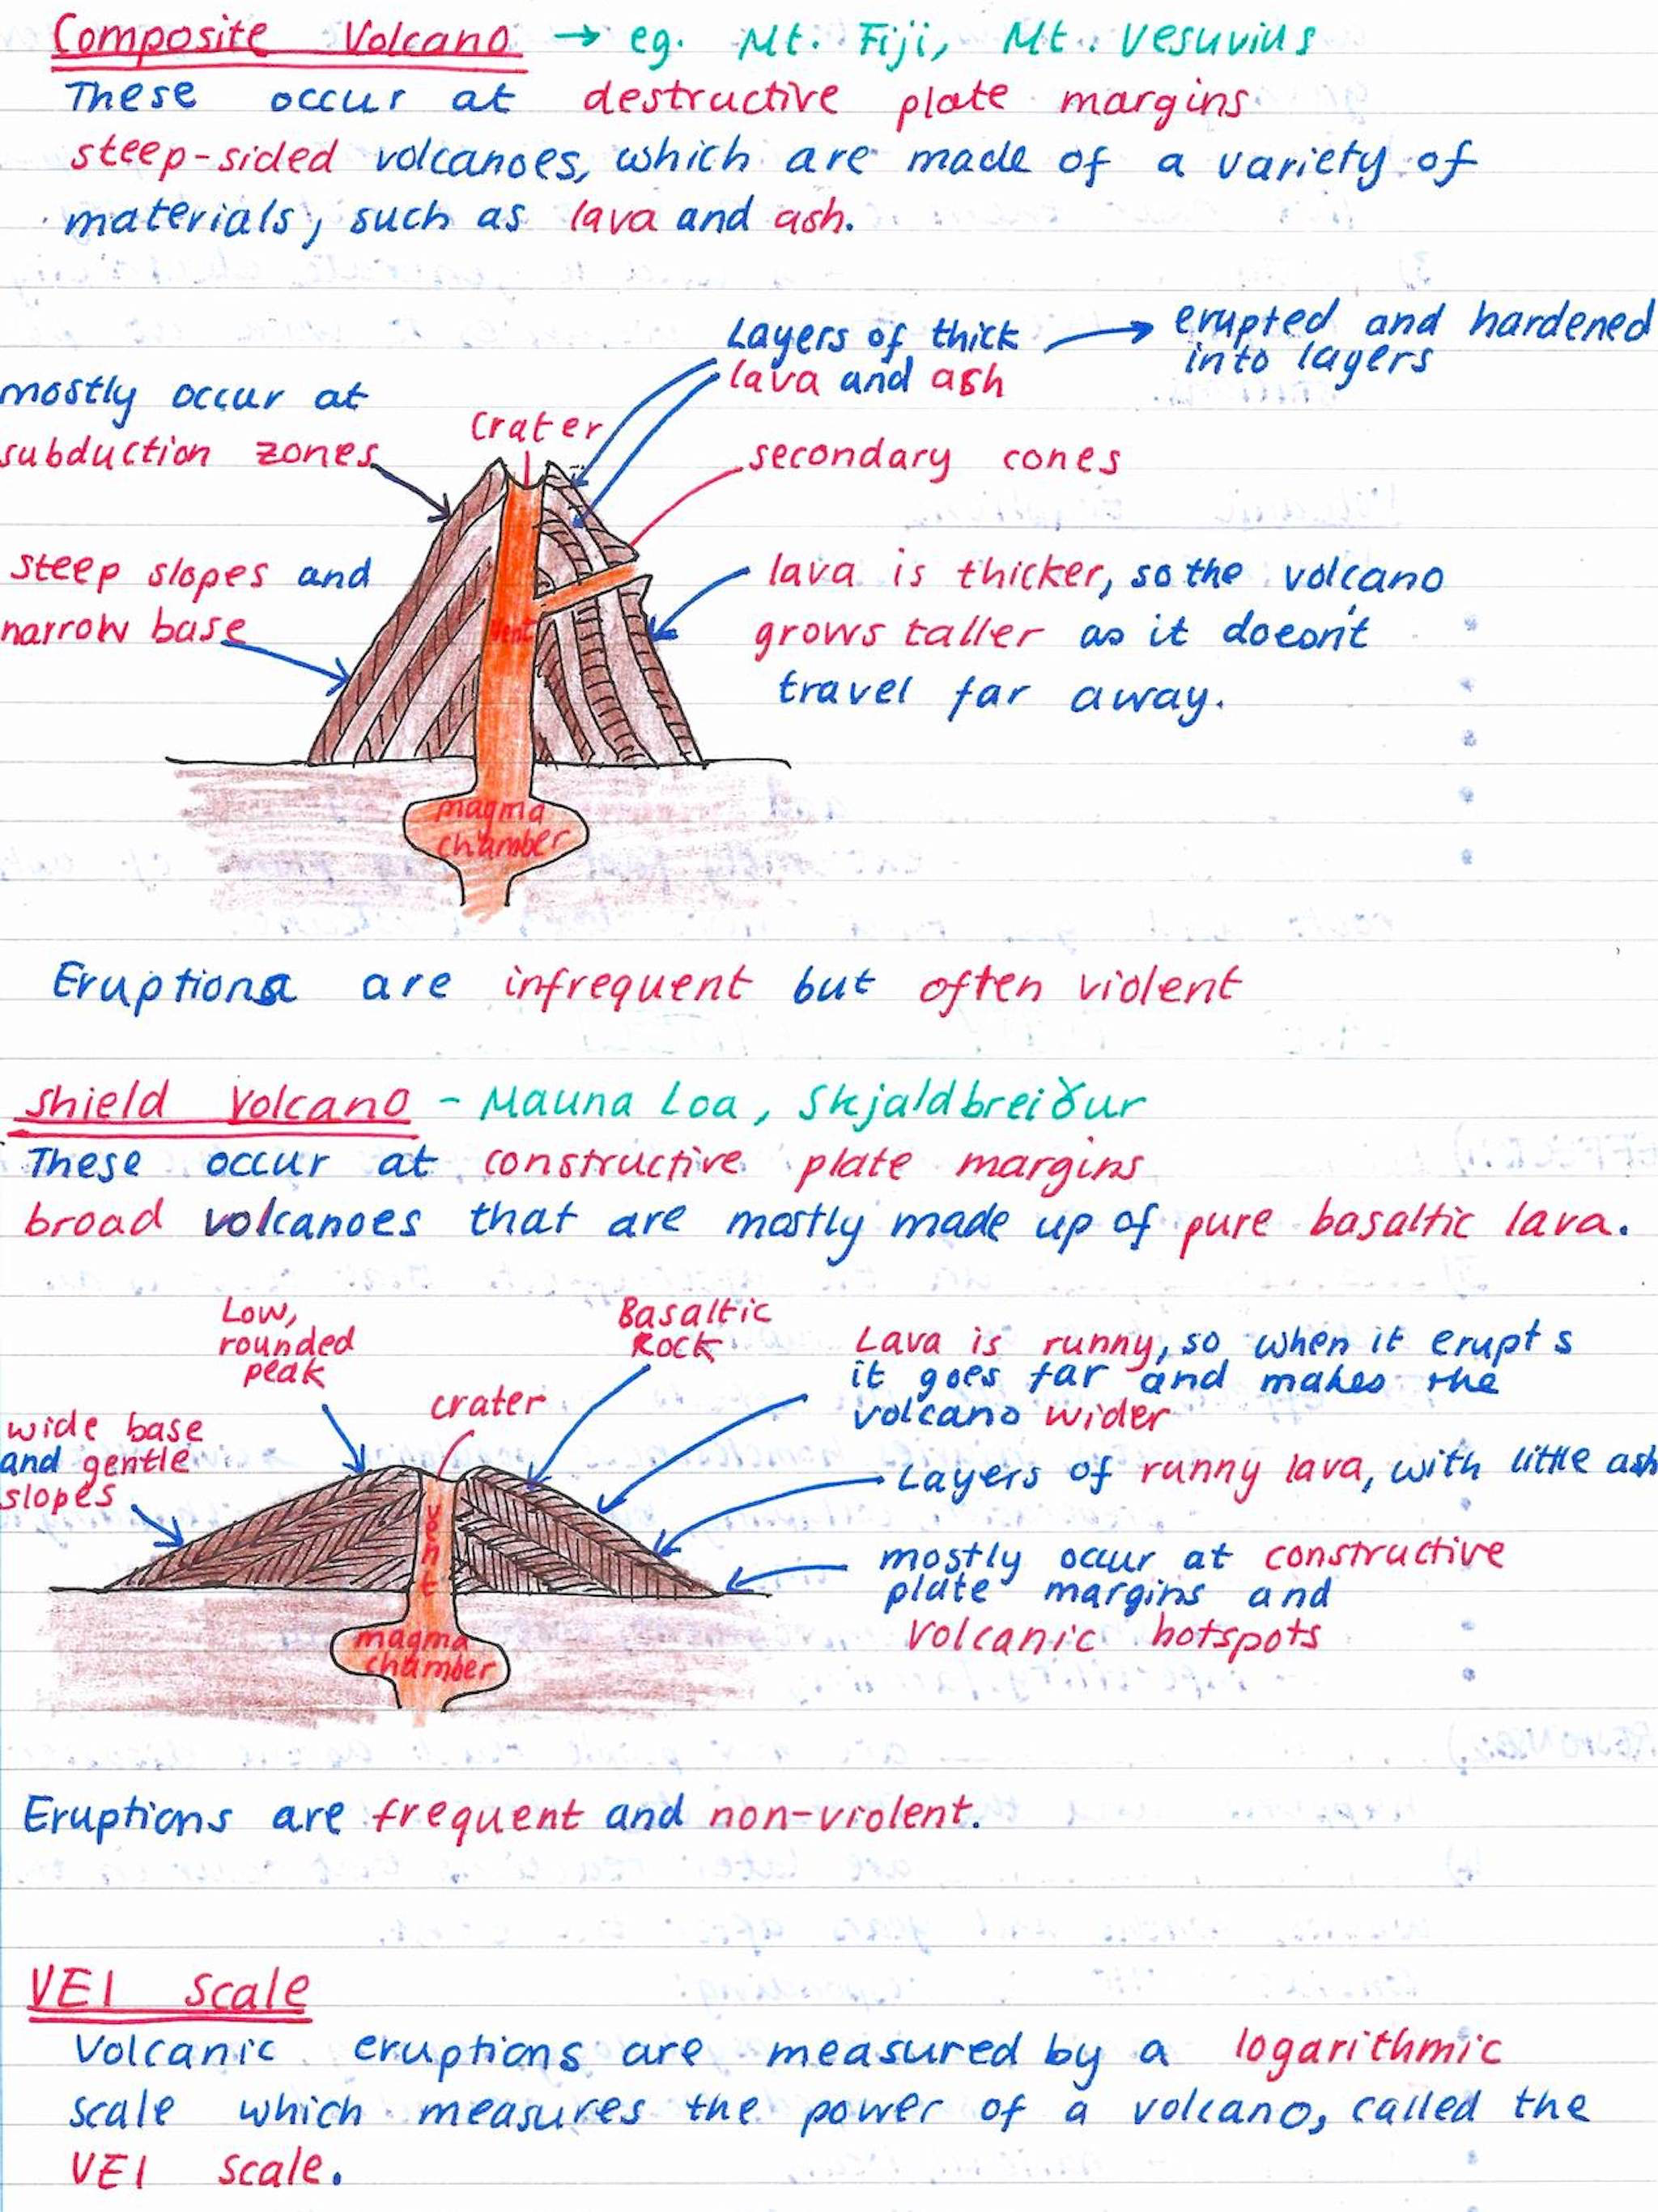 Composite Volcano → eg. Mt. Fiji, Mt. Vesuvius
These occur at destructive plate margins
steep-sided volcanoes, which are made of a variety of
materials, such as lava and ash.
Layers of thick → erupted and hardened
lava and ash into layers
mostly occur at
subduction zones
crater
secondary cones
steep slopes and
narrow base
lava is thicker, so the volcano
grows taller as it doesn't
travel far away.
vent
magma
chamber
Eruptions are infrequent but often violent
Shield Volcano - Mauna Loa, Skjaldbreiður
These occur at constructive plate margins
broad volcanoes that are mostly made up of pure basaltic lava.
Low,
rounded
peak
Basaltic
Rock
crater
Lava is runny, so when it erupts
it goes far and makes the
volcano wider
wide base
and gentle
slopes
Layers of runny lava, with little ash
mostly occur at constructive
plate margins and
volcanic hotspots
vent
magma
chamber
Eruptions are frequent and non-violent.
VEI Scale
Volcanic eruptions are measured by a logarithmic
scale which measures the power of a volcano, called the
VEI scale.